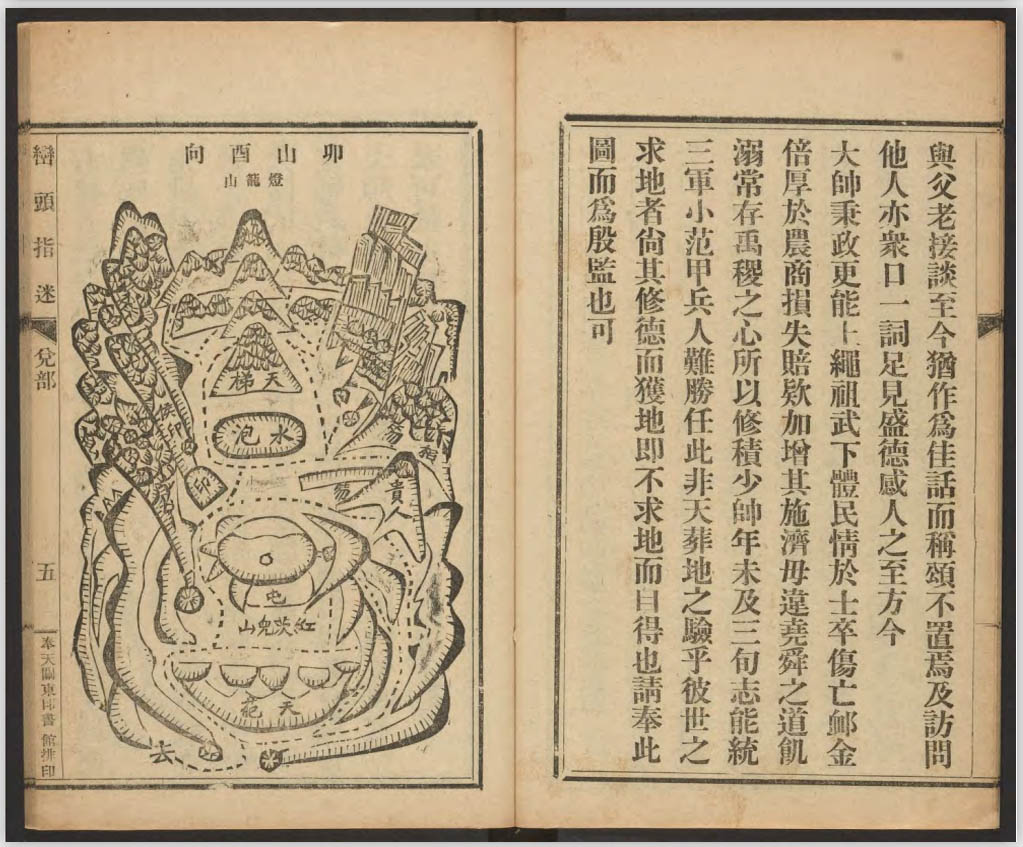 與父老接談至今猶作爲佳話而稱頌不置焉及訪問
他人亦衆口一詞足見盛德感人之至方今
大帥秉政更能上繩祖武下體民情於士卒傷亡卹金
倍厚於農商損失賠欵加增其施濟毋違堯舜之道飢
溺常存禹稷之心所以修積少帥年未及三旬志能統
三軍小范甲兵人難勝任此非天葬地之驗乎彼世之
求地者尙其修德而獲地即不求地而自得也請奉此
圖而爲殷監也可
卯山酉向
燈籠山
天梯
水泡
印
貴人
屯
紅茨兜山
天苑
去
巒頭指迷
兌部
五
奉天關東印書館排印